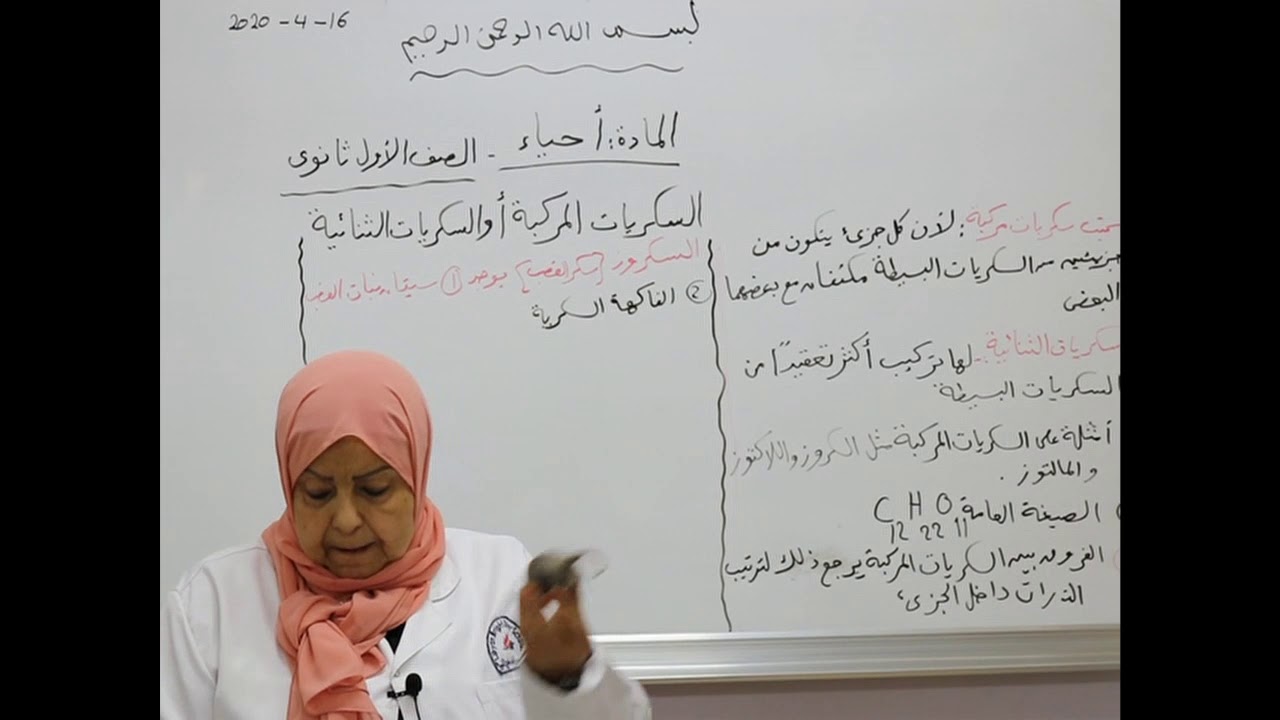 2020-4-16
بسم الله الرحمن الرحيم
المادة: أحياء - الصف الأول ثانوى
السكريات المركبة أو السكريات الثنائية
السكروز [سكر القصب] يوجد ① سيقان نبات القصب
② الفاكهة السكرية
سميت سكريات مركبة: لأن كل جزئ يتكون من
جزيئين من السكريات البسيطة مع بعضهما
البعض
السكريات الثنائية - لها تركيب أكثر تعقيدًا من
السكريات البسيطة
أمثلة على السكريات المركبة مثل السكروز واللاكتوز
و المالتوز .
الصيغة العامة C12 H22 O11
الفرق بين السكريات المركبة يرجع ذلك لترتيب
الذرات داخل الجزى